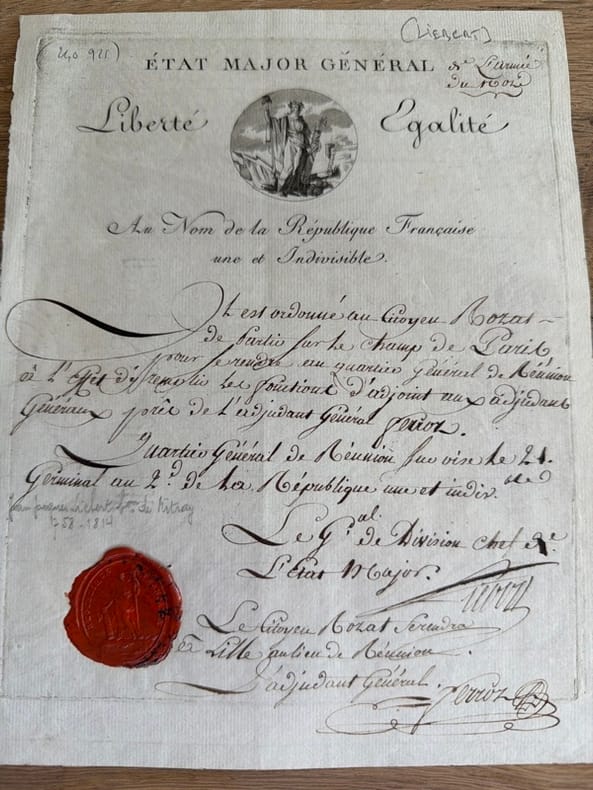 (LIEBERT)
ÉTAT MAJOR GÉNÉRAL de L'armée
du Nord
Liberté Egalité
Au Nom de la République Française
une et Indivisible.
Il est ordonné au Citoyen Rozat
de partir sur le champ de Paris
pour se rendre au quartier Général de Réunion
à L'Effet d'y remplir les fonctions d'adjoint aux adjudants
Généraux près de L'adjudant Général Perroz.
Quartier Général de Réunion sur oise le 21.
Germinal an 2.d de La République une et indiv.ble
1758-1814
Le G.al de Division chef de
L'Etat Major.
Le Citoyen Rozat se rendra
à Lille au lieu de Réunion.
L'adjudant Général.
Perroz